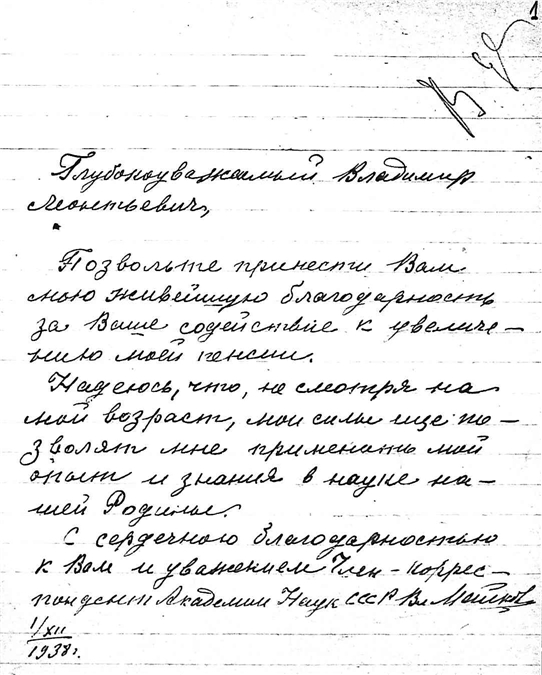 1
Глубокоуважаемый Владимир
Леонтьевич,
Позвольте принести Вам
мою живейшую благодарность
за Ваше содействие к увеличе-
нию моей пенсии.
Надеюсь, что, не смотря на
мой возраст, мои силы еще по-
зволят мне применять мой
опыт и знания в науке на-
шей Родины.
С сердечною благодарностью
к Вам и уважением Член-коррес-
пондент Академии Наук СССР Вл. Майков
1/XII
1938 г.